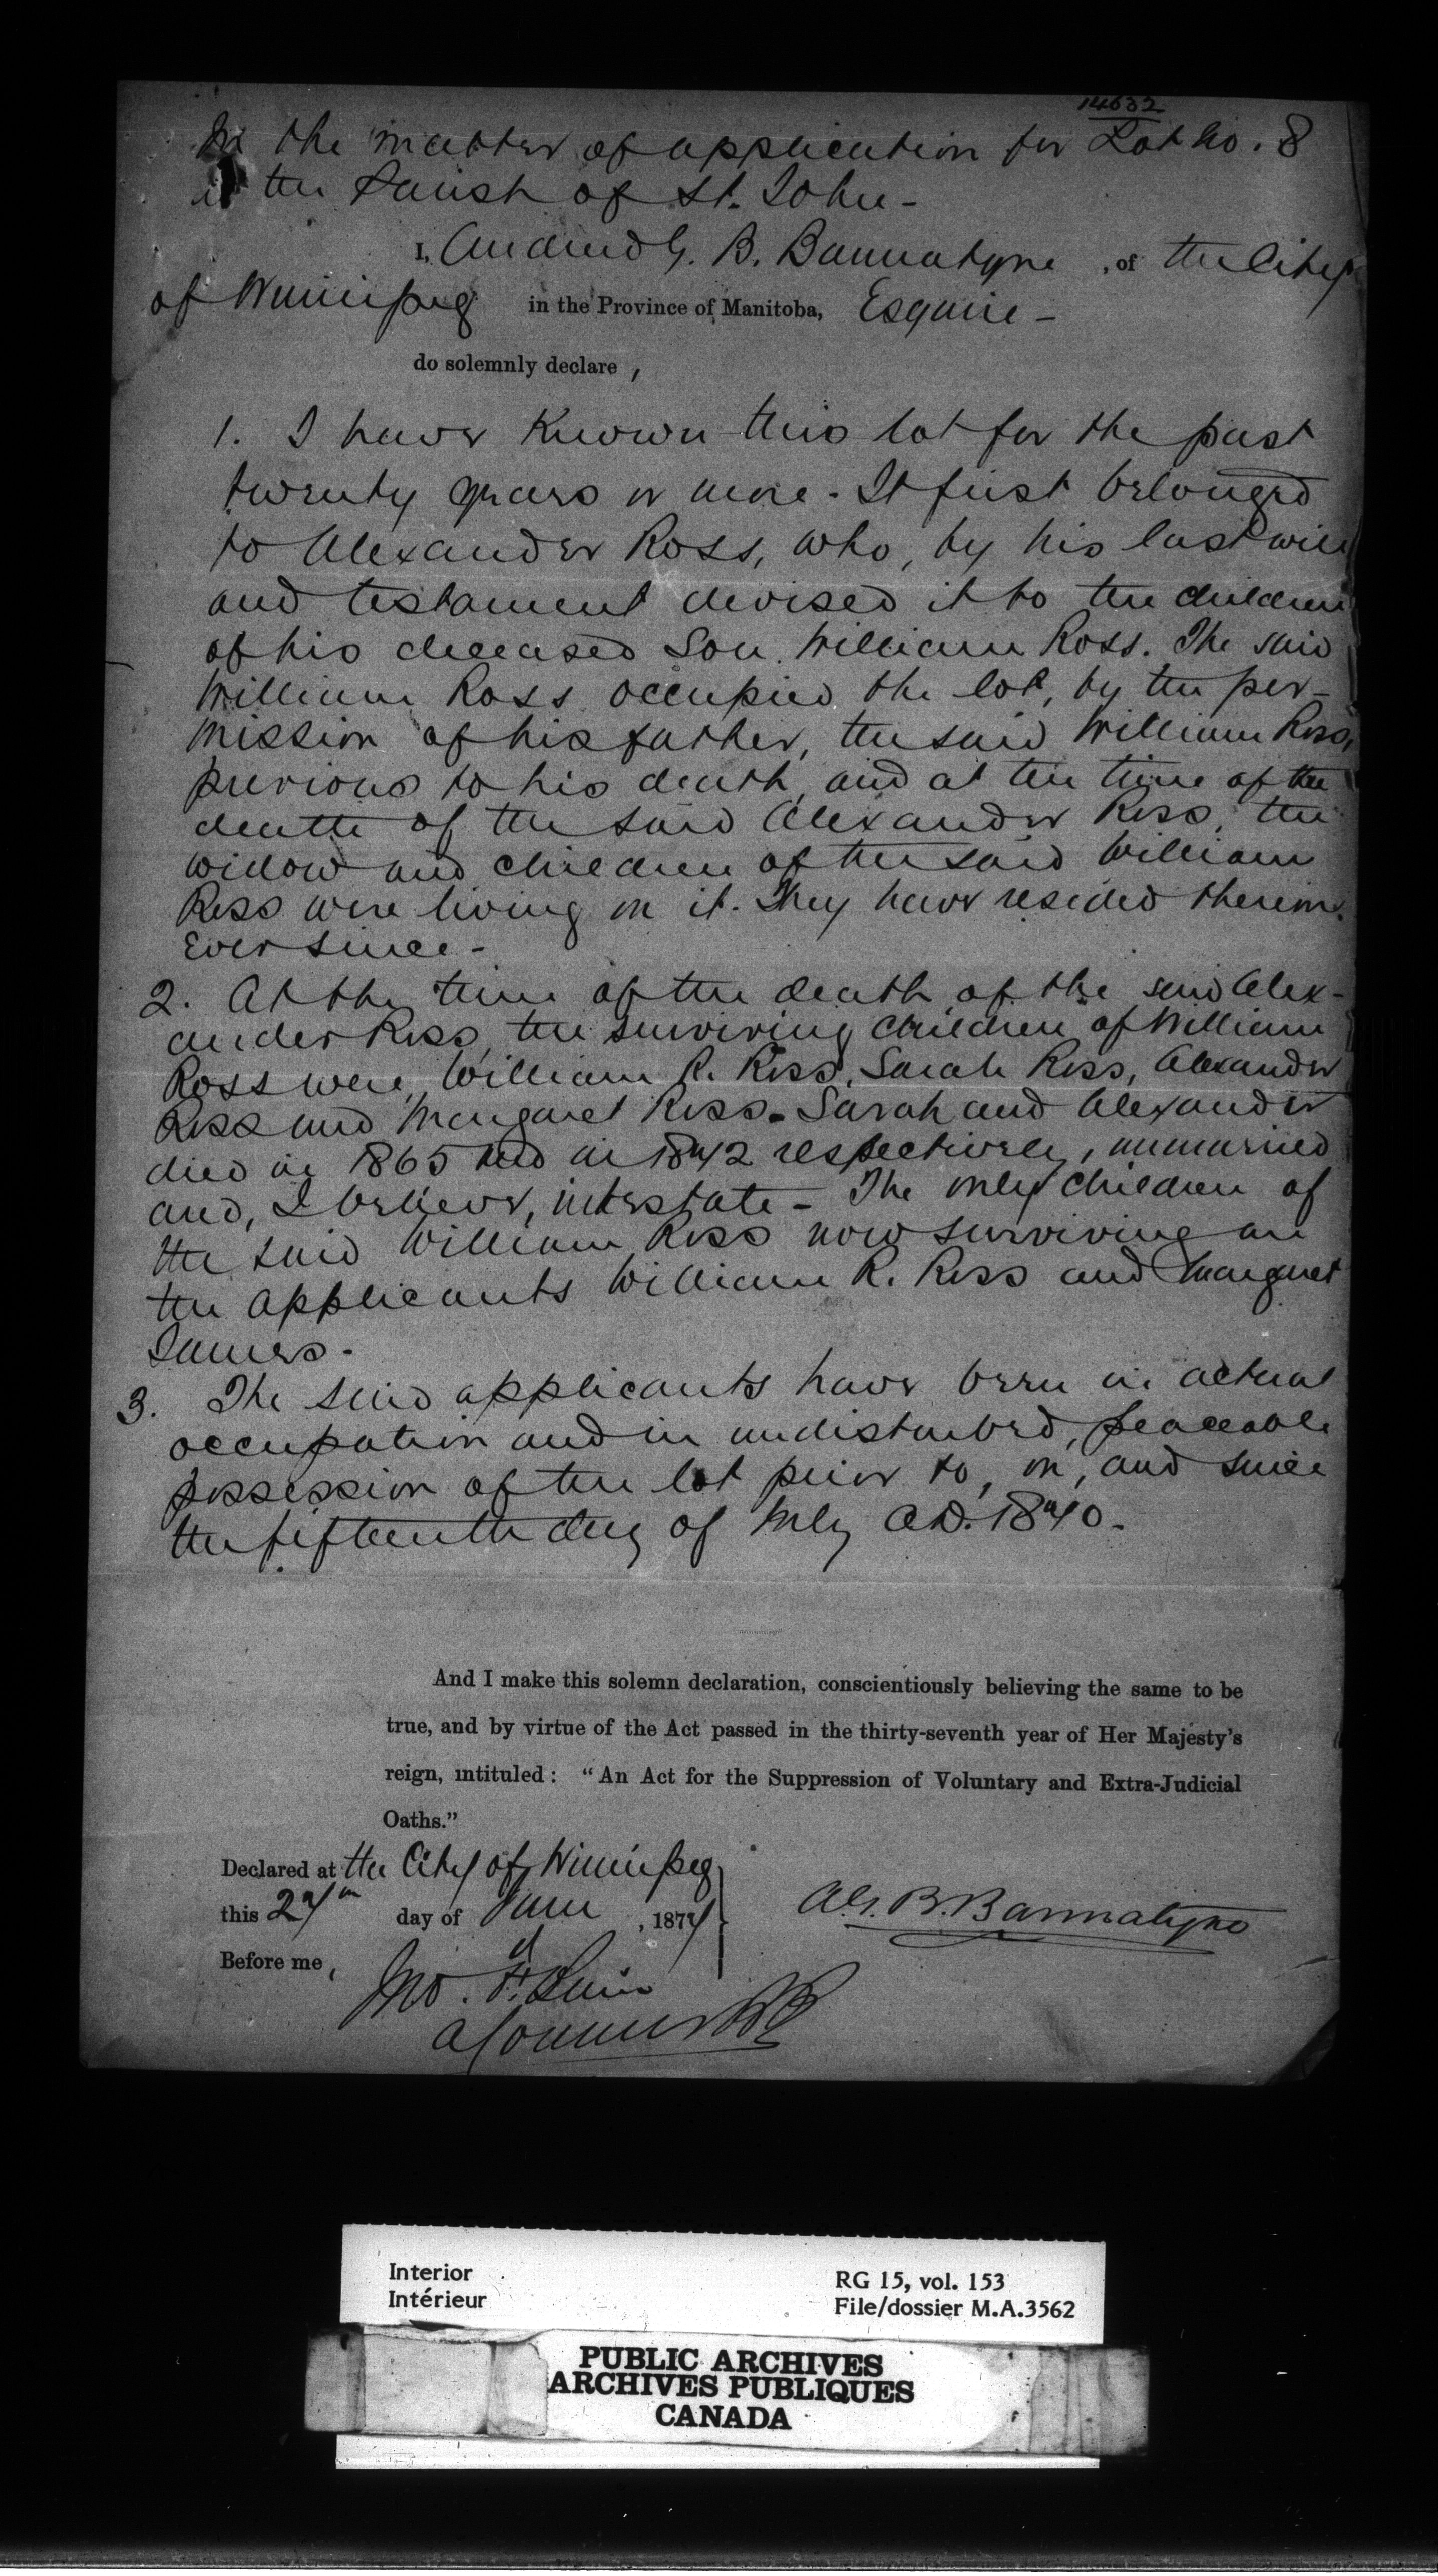 14632
In the matter of application for Lot No. 8
in the Parish of St. John -
I, Andrew G. B. Bannatyne , of the City
of Winnipeg in the Province of Manitoba, Esquire -
do solemnly declare ,
1. I have known this lot for the past
twenty years or more - It first belonged
to Alexander Ross, who, by his last will
and testament devised it to the children
of his deceased Son William Ross. The said
William Ross occupied the lot, by the per-
mission of his father, the said William Ross,
previous to his death, and at the time of the
death of the said Alexander Ross, the
widow and children of the said William
Ross were living on it. They have resided thereon
ever since -
2. At the time of the death of the said Alex-
ander Ross, the surviving children of William
Ross were, William R. Ross, Sarah Ross, Alexander
Ross and Margaret Ross - Sarah and Alexander
died in 1865 and in 1872 respectively, unmarried
and, I believe, intestate - The only children of
the said William Ross now surviving are
the applicants William R. Ross and Margaret
James -
3. The said applicants have been in actual
occupation and in undisturbed, peaceable
possession of the lot prior to, on, and since
the fifteenth day of July A.D. 1870 -
And I make this solemn declaration, conscientiously believing the same to be
true, and by virtue of the Act passed in the thirty-seventh year of Her Majesty's
reign, intituled: "An Act for the Suppression of Voluntary and Extra-Judicial
Oaths."
Declared at the City of Winnipeg
this 27th day of June , 1877
A. G. B. Bannatyne
Before me,
Jno. F.
A Commr
Interior
Intérieur
RG 15, vol. 153
File/dossier M.A.3562
PUBLIC ARCHIVES
ARCHIVES PUBLIQUES
CANADA